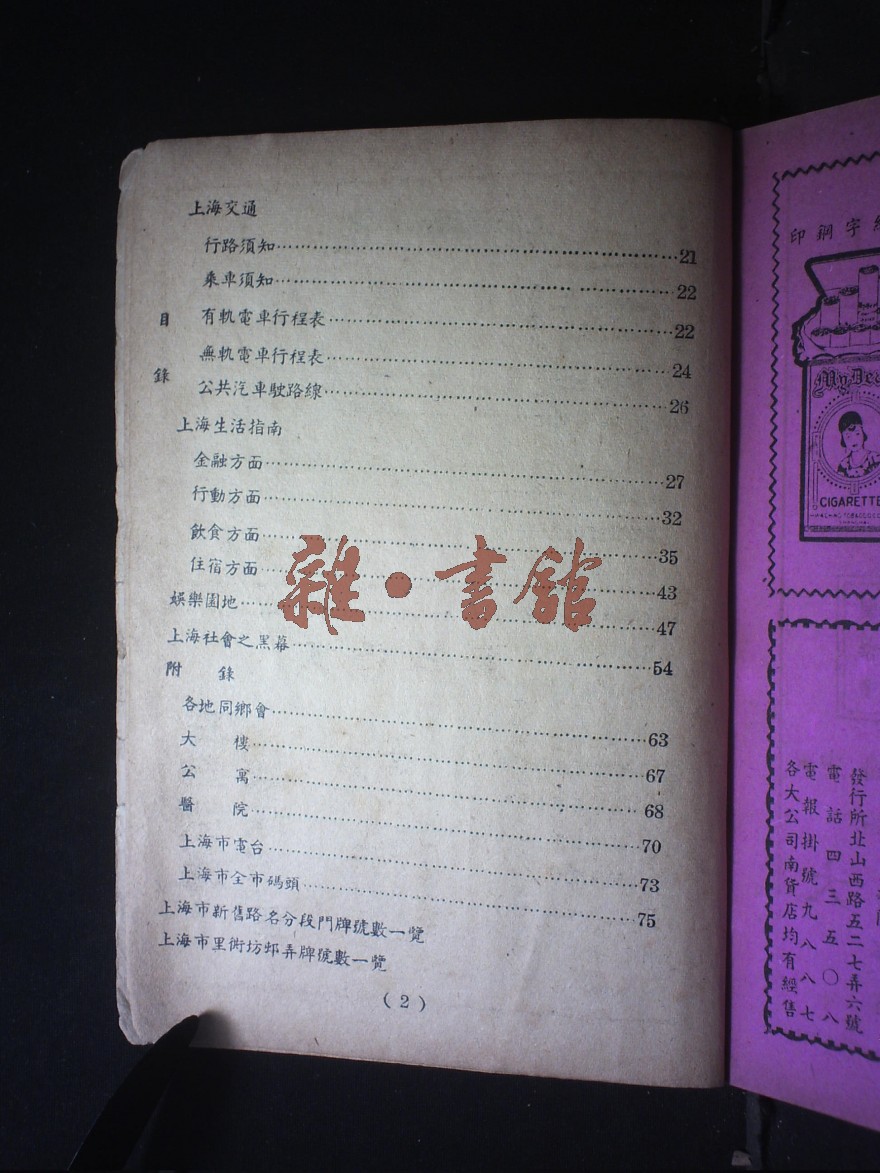 目錄
上海交通
行路須知……21
乘車須知……22
有軌電車行程表……22
無軌電車行程表……24
公共汽車駛路線……26
上海生活指南
金融方面……27
行動方面……32
飲食方面……35
住宿方面……43
娛樂園地……47
上海社會之黑幕……54
附錄
各地同鄉會……63
大樓……67
公寓……68
醫院……70
上海市電台……73
上海市全市碼頭……75
上海市新舊路名分段門牌號數一覽
上海市里衖坊邨弄牌號數一覽
(2)
雜·書館
印鋼字
My Dea
CIGARETTE
發行所北山西路五二七弄六號
電話四三五〇八
電報掛號九八八七
各大公司南貨店均有經售